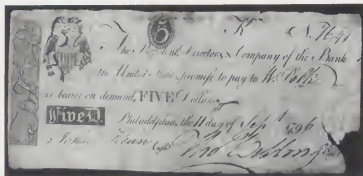 5 N. 7641
The President Directors & Company of the Bank
the United States promise to pay to
or bearer on demand, FIVE Dollars
FiveD. Philadelphia, the 11 day of Sept 1796
John Kean Cash